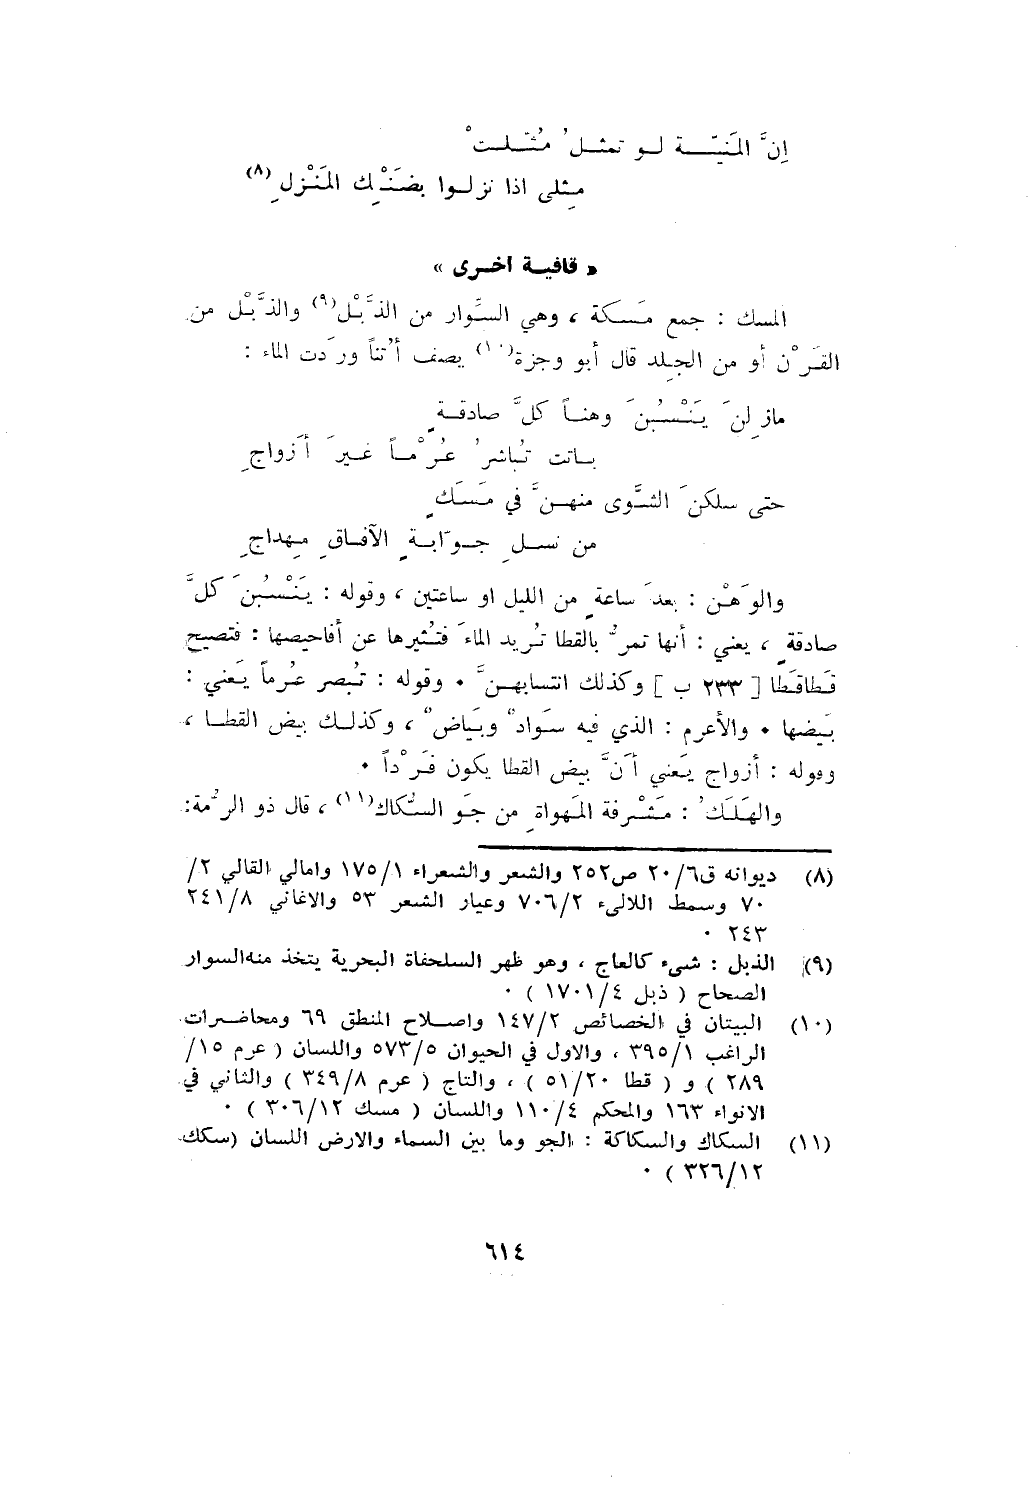 إنَّ المَنيّـــة لــو تمثــلُ مُثّلــتْ
مِثلى اذا نزلــوا بضَنْكِ المَنْزلِ (٨)
« قافيــة اخــرى »
المسك : جمع مَسَكة ، وهي السِّوار من الذَّبْل(٩) والذَّبْل من
القَرْن أو من الجِلد قال أبو وجزة(١٠) يصف أُتناً وردت الماء :
مازِلنَ يَنْسُبنَ وهنــاً كلَّ صادقــةٍ
بــاتت تُباشرُ عُرْمــاً غيرَ أزواجِ
حتى سلكنَ الشَّوى منهــنَّ في مَسَكٍ
من نســلِ جــوّابةِ الآفــاقِ مِهداجِ
والوَهْن : بعدَ ساعةٍ من الليل او ساعتين ، وقوله : يَنْسُبنَ كلَّ
صادقةٍ ، يعني : أنها تمرُّ بالقطا تُريد الماءَ فتُثيرها عن أفاحيصها : فتصيح
قَطاقَطا [ ٢٣٣ ب ] وكذلك انتسابهــنَّ ٠ وقوله : تُبصر عُرماً يَعني :
بَيضها ٠ والأعرم : الذي فيه سَوادٌ وبَياضٌ ، وكذلــك بيض القطــا ،
وقوله : أزواج يَعني أنَّ بيض القطا يكون فَرْداً ٠
والهَلَكُ : مَشْرفة المَهواةِ من جَو السُّكاك(١١) ، قال ذو الرُّمة:
(٨) ديوانه ق٢٠/٦ ص٢٥٢ والشعر والشعراء ١٧٥/١ وامالي القالي ٢/
٧٠ وسمط اللالىء ٧٠٦/٢ وعيار الشعر ٥٣ والاغاني ٢٤١/٨
٢٤٣ ٠
(٩) الذبل : شىء كالعاج ، وهو ظهر السلحفاة البحرية يتخذ منه السوار
الصحاح ( ذبل ١٧٠١/٤ ) ٠
(١٠) البيتان في الخصائص ١٤٧/٢ واصــلاح المنطق ٦٩ ومحاضــرات
الراغب ٣٩٥/١ ، والاول في الحيوان ٥٧٣/٥ واللسان ( عرم ١٥/
٢٨٩ ) و ( قطا ٥١/٢٠ ) ، والتاج ( عرم ٣٤٩/٨ ) والثاني في
الانواء ١٦٣ والمحكم ١١٠/٤ واللسان ( مسك ٣٠٦/١٢ ) ٠
(١١) السكاك والسكاكة : الجو وما بين السماء والارض اللسان (سكك
٣٢٦/١٢ ) ٠
٦١٤